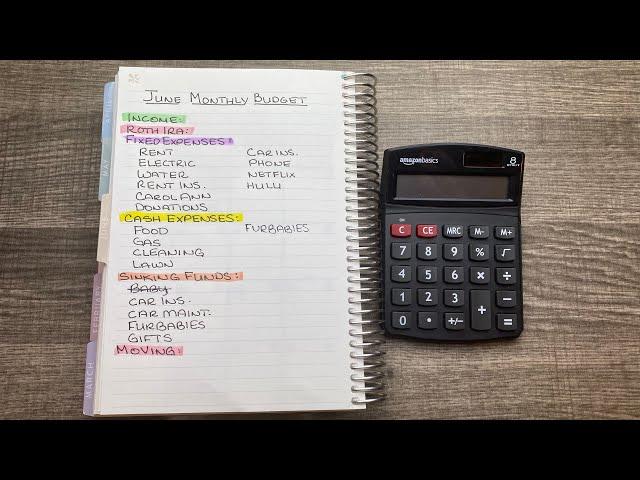 JUNE MONTHLY BUDGET
INCOME:
ROTH IRA:
FIXED EXPENSES:
RENT CAR INS.
ELECTRIC PHONE
WATER NETFLIX
RENT INS. HULU
CAROL ANN
DONATIONS
CASH EXPENSES:
FOOD FURBABIES
GAS
CLEANING
LAWN
SINKING FUNDS:
BABY
CAR INS.
CAR MAINT.
FURBABIES
GIFTS
MOVING:
MAY
MARCH
amazonbasics 8
C CE MRC M- M+
7 8 9 % √
4 5 6 × ÷
1 2 3 + −
0 • +/− =